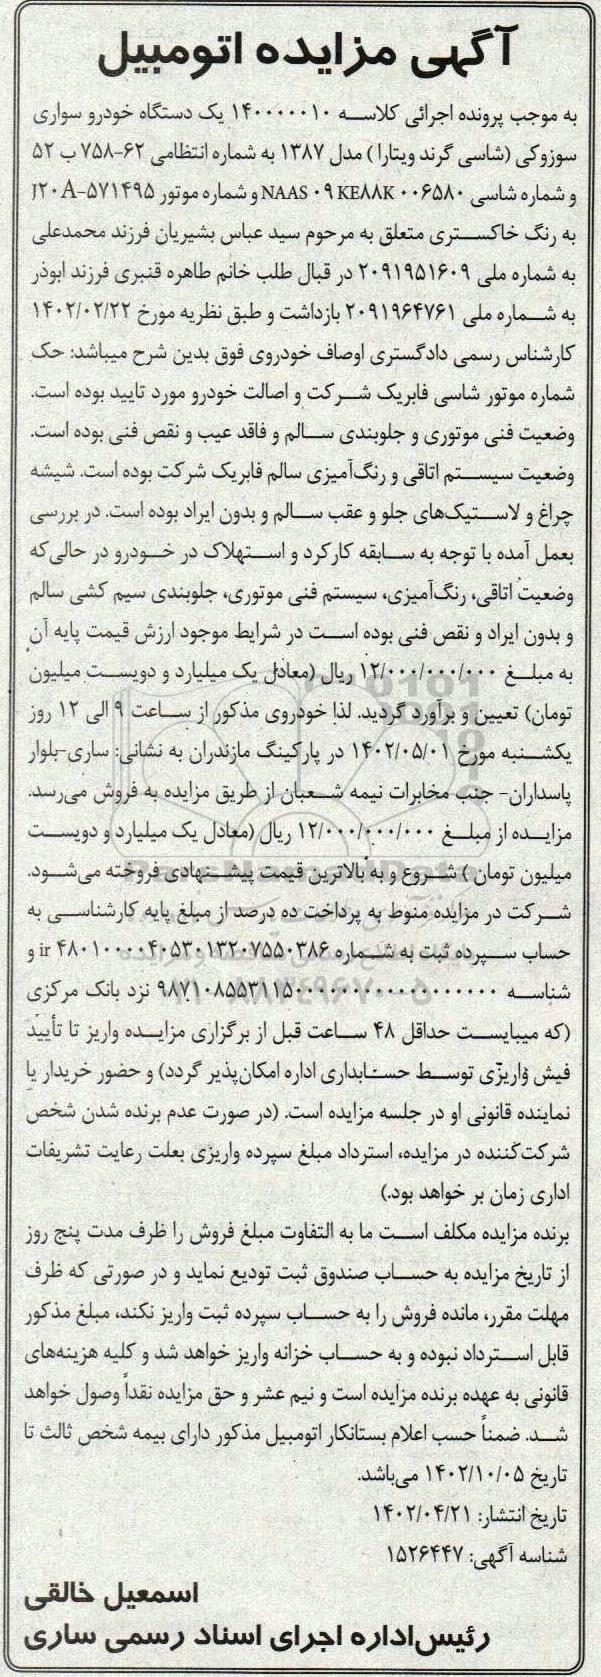 آگهی مزایده اتومبیل
به موجب پرونده اجرائی کلاسه ۱۴۰۰۰۰۰۱۰ یک دستگاه خودرو سواری
سوزوکی (شاسی گرند ویتارا) مدل ۱۳۸۷ به شماره انتظامی ۶۲-۷۵۸ ب ۵۲
و شماره شاسی NAAS ۰۹ KE۸۸K ۰۰۶۵۸۰ و شماره موتور J۲۰A-۵۷۱۴۹۵
به رنگ خاکستری متعلق به مرحوم سید عباس بشیریان فرزند محمدعلی
به شماره ملی ۲۰۹۱۹۵۱۶۰۹ در قبال طلب خانم طاهره قنبری فرزند ابوذر
به شماره ملی ۲۰۹۱۹۶۴۷۶۱ بازداشت و طبق نظریه مورخ ۱۴۰۲/۰۲/۲۲
کارشناس رسمی دادگستری اوصاف خودروی فوق بدین شرح میباشد: حک
شماره موتور شاسی فابریک شرکت و اصالت خودرو مورد تایید بوده است.
وضعیت فنی موتوری و جلوبندی سالم و فاقد عیب و نقص فنی بوده است.
وضعیت سیستم اتاقی و رنگ‌آمیزی سالم فابریک شرکت بوده است. شیشه
چراغ و لاستیک‌های جلو و عقب سالم و بدون ایراد بوده است. در بررسی
بعمل آمده با توجه به سابقه کارکرد و استهلاک در خودرو در حالی‌که
وضعیت اتاقی، رنگ‌آمیزی، سیستم فنی موتوری، جلوبندی سیم کشی سالم
و بدون ایراد و نقص فنی بوده است در شرایط موجود ارزش قیمت پایه آن
به مبلغ ۱۲/۰۰۰/۰۰۰/۰۰۰ ریال (معادل یک میلیارد و دویست میلیون
تومان) تعیین و برآورد گردید. لذا خودروی مذکور از ساعت ۹ الی ۱۲ روز
یکشنبه مورخ ۱۴۰۲/۰۵/۰۱ در پارکینگ مازندران به نشانی: ساری-بلوار
پاسداران- جنب مخابرات نیمه شعبان از طریق مزایده به فروش می‌رسد.
مزایده از مبلغ ۱۲/۰۰۰/۰۰۰/۰۰۰ ریال (معادل یک میلیارد و دویست
میلیون تومان ) شروع و به بالاترین قیمت پیشنهادی فروخته می‌شود.
شرکت در مزایده منوط به پرداخت ده درصد از مبلغ پایه کارشناسی به
حساب سپرده ثبت به شماره ir ۴۸۰۱۰۰۰۰۴۰۵۳۰۱۳۲۰۷۵۵۰۳۸۶ و
شناسه نزد بانک مرکزی
(که میبایست حداقل ۴۸ ساعت قبل از برگزاری مزایده واریز تا تأیید
فیش واریزی توسط حسابداری اداره امکان‌پذیر گردد) و حضور خریدار یا
نماینده قانونی او در جلسه مزایده است. (در صورت عدم برنده شدن شخص
شرکت‌کننده در مزایده، استرداد مبلغ سپرده واریزی بعلت رعایت تشریفات
اداری زمان بر خواهد بود.)
برنده مزایده مکلف است ما به التفاوت مبلغ فروش را ظرف مدت پنج روز
از تاریخ مزایده به حساب صندوق ثبت تودیع نماید و در صورتی که ظرف
مهلت مقرر، مانده فروش را به حساب سپرده ثبت واریز نکند، مبلغ مذکور
قابل استرداد نبوده و به حساب خزانه واریز خواهد شد و کلیه هزینه‌های
قانونی به عهده برنده مزایده است و نیم عشر و حق مزایده نقداً وصول خواهد
شد. ضمناً حسب اعلام بستانکار اتومبیل مذکور دارای بیمه شخص ثالث تا
تاریخ ۱۴۰۲/۱۰/۰۵ می‌باشد.
تاریخ انتشار: ۱۴۰۲/۰۴/۲۱
شناسه آگهی: ۱۵۲۶۴۴۷
اسمعیل خالقی
رئیس‌اداره اجرای اسناد رسمی ساری